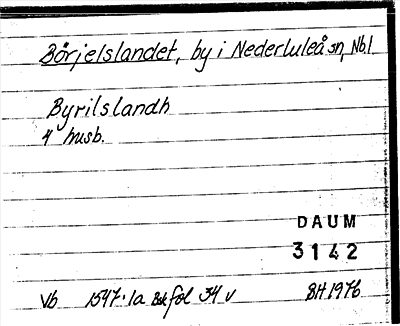 Börjelslandet, by i Nederluleå sn, Nbl
Byrilslandh
4 husb.
DAUM
3142
Vb 1547:1a Bskfol 34 v BH 1976